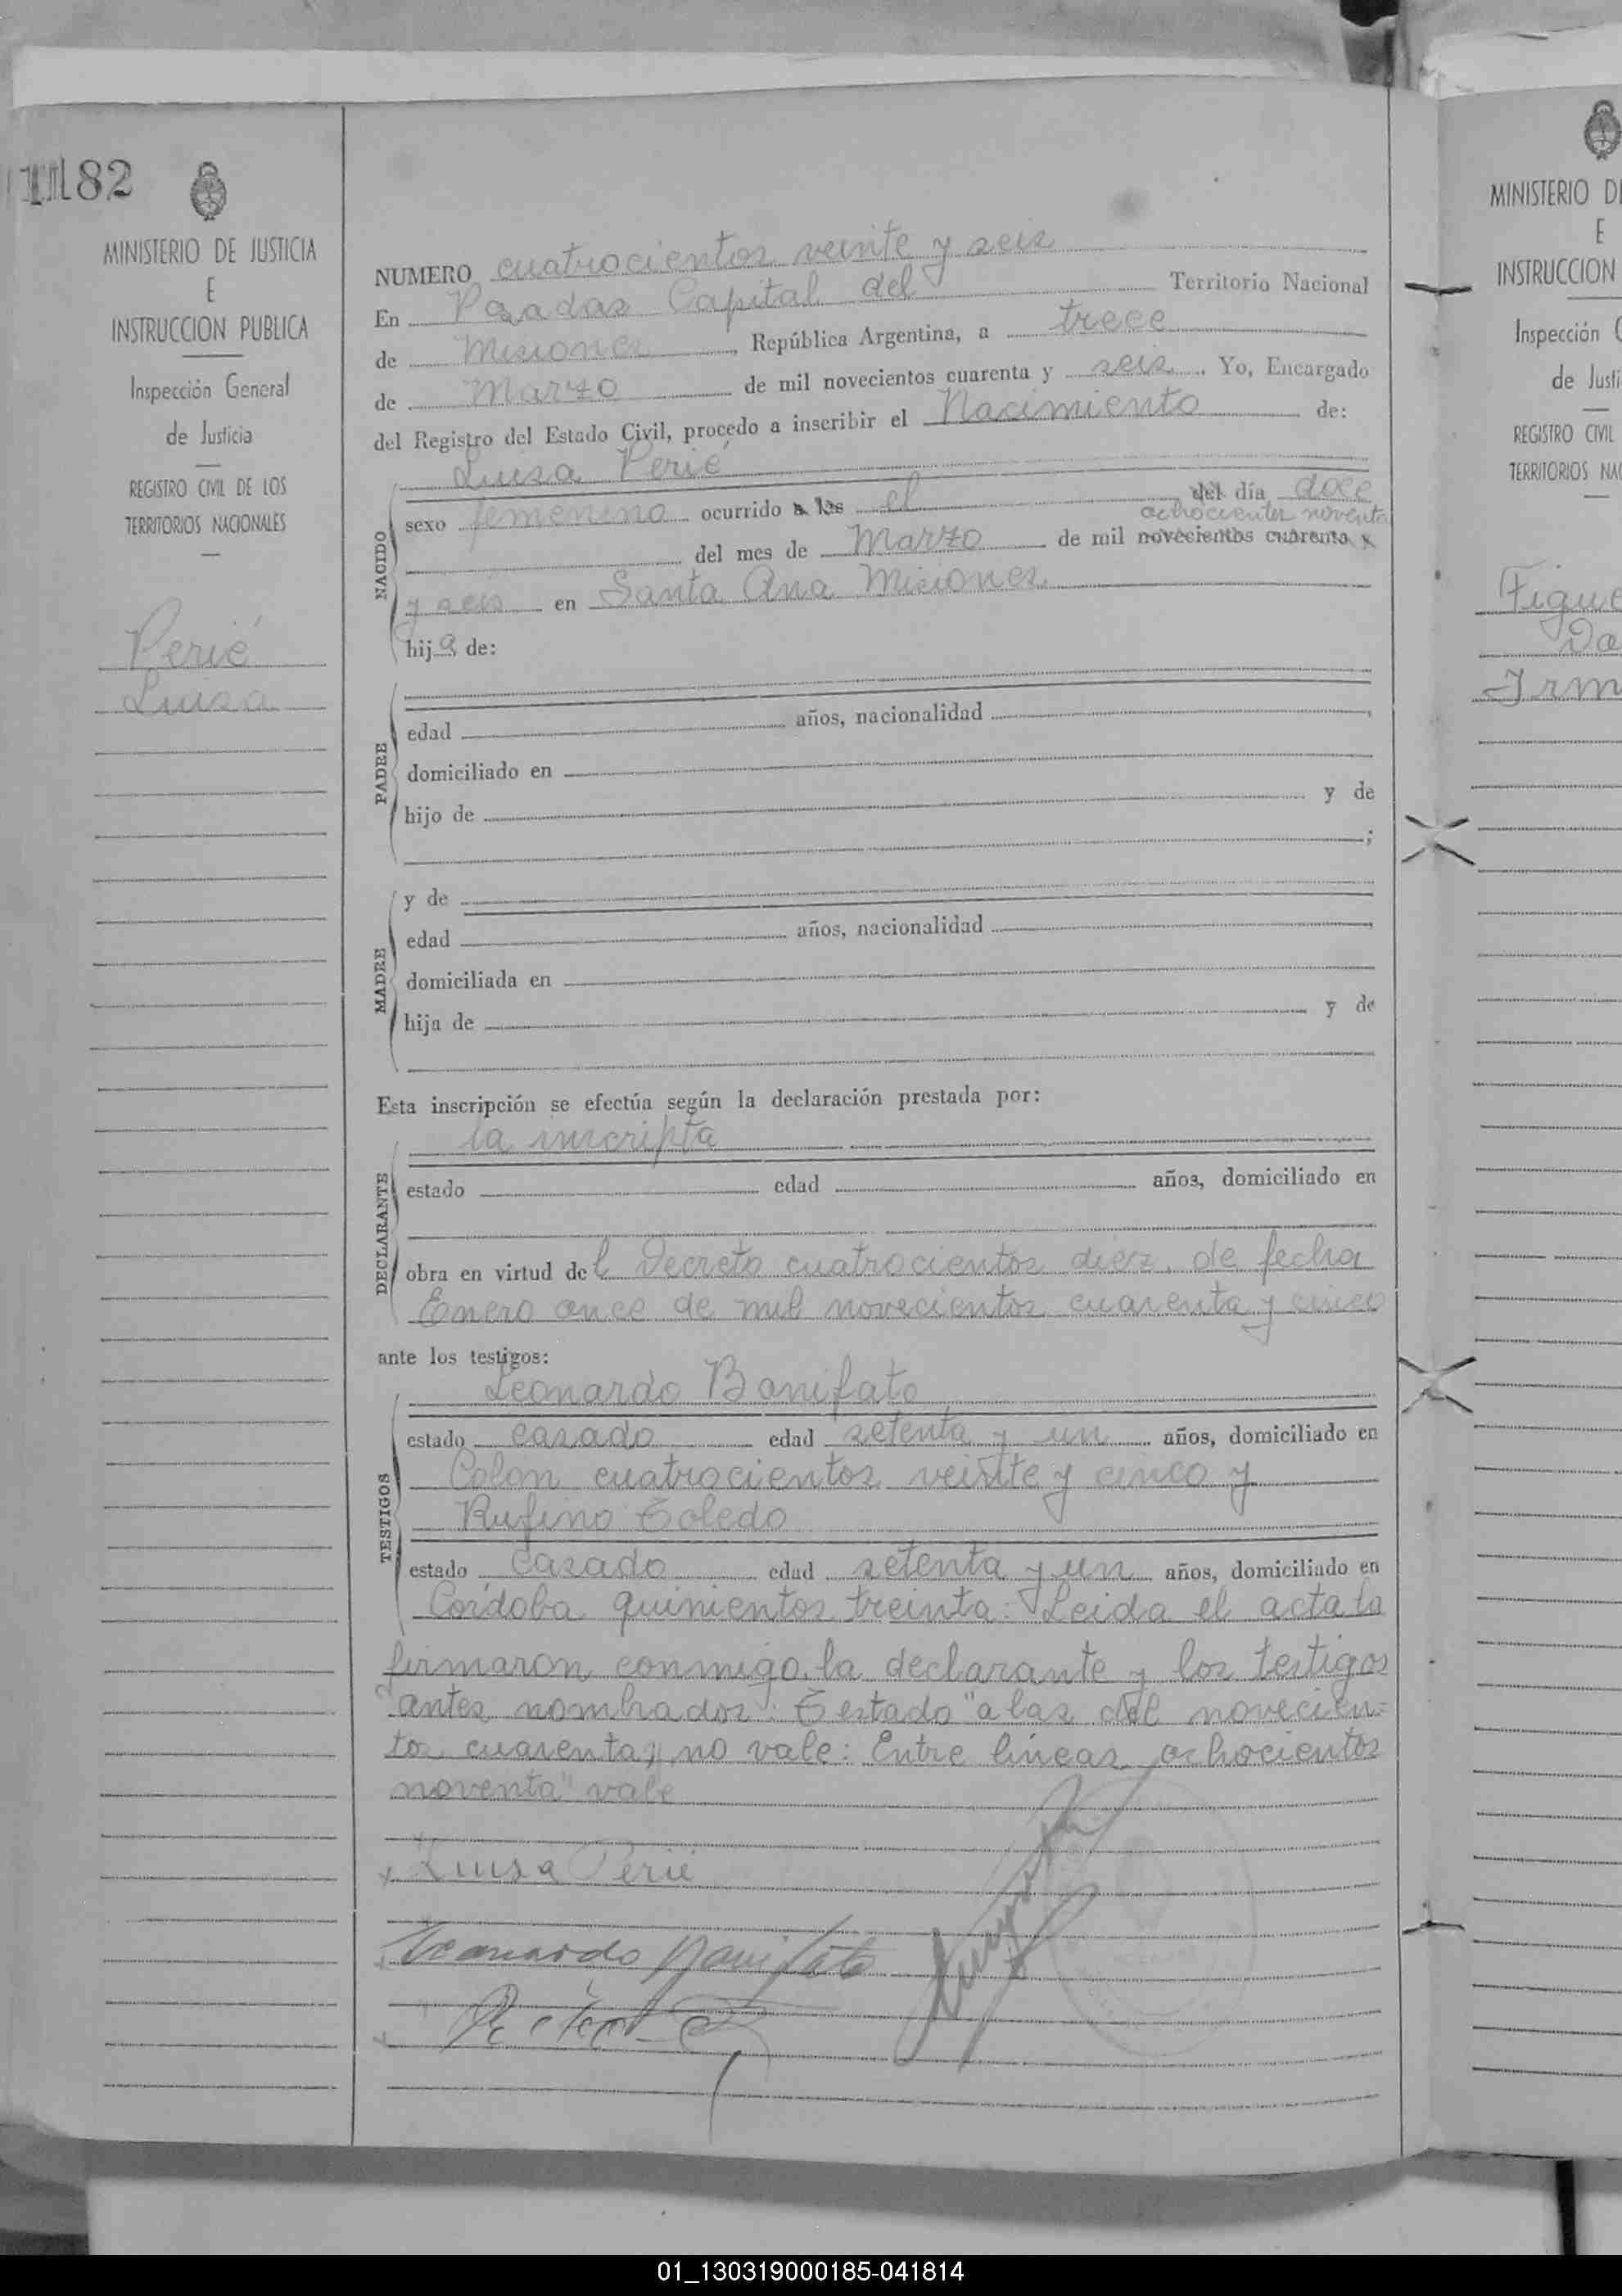 1182
MINISTERIO DE JUSTICIA
E
INSTRUCCION PUBLICA
Inspección General
de Justicia
REGISTRO CIVIL DE LOS
TERRITORIOS NACIONALES
Perié
Luisa
NUMERO cuatrocientos veinte y seis
En Posadas Capital del Territorio Nacional
de Misiones, República Argentina, a trece
de Marzo de mil novecientos cuarenta y seis. Yo, Encargado
del Registro del Estado Civil, procedo a inscribir el Nacimiento de:
Luisa Perié
NACIDO
sexo femenino ocurrido a las el del día doce
ochocientos noventa
del mes de Marzo de mil novecientos cuarenta y
y seis en Santa Ana Misiones
hija de:
PADRE
edad años, nacionalidad
domiciliado en
hijo de y de
;
MADRE
y de
edad años, nacionalidad
domiciliada en
hija de y de
Esta inscripción se efectúa según la declaración prestada por:
la inscripta
DECLARANTE
estado edad años, domiciliado en
obra en virtud del Decreto cuatrocientos diez de fecha
Enero once de mil novecientos cuarenta y cinco
ante los testigos:
Leonardo Bonifato
TESTIGOS
estado casado edad setenta y un años, domiciliado en
Colón cuatrocientos veinte y cinco y
Rufino Toledo
estado casado edad setenta y un años, domiciliado en
Córdoba quinientos treinta: Leida el acta la
firmaron conmigo la declarante y los testigos
antes nombrados: Testado "a las del novecien=
tos cuarenta y, no vale: Entre líneas ochocientos
noventa" vale
Luisa Perié
Leonardo Bonifato
MINISTERIO DE
E
INSTRUCCION
Inspección G
de Justi
REGISTRO CIVIL
TERRITORIOS NAC
Figue
Da
Irm
01_130319000185-041814